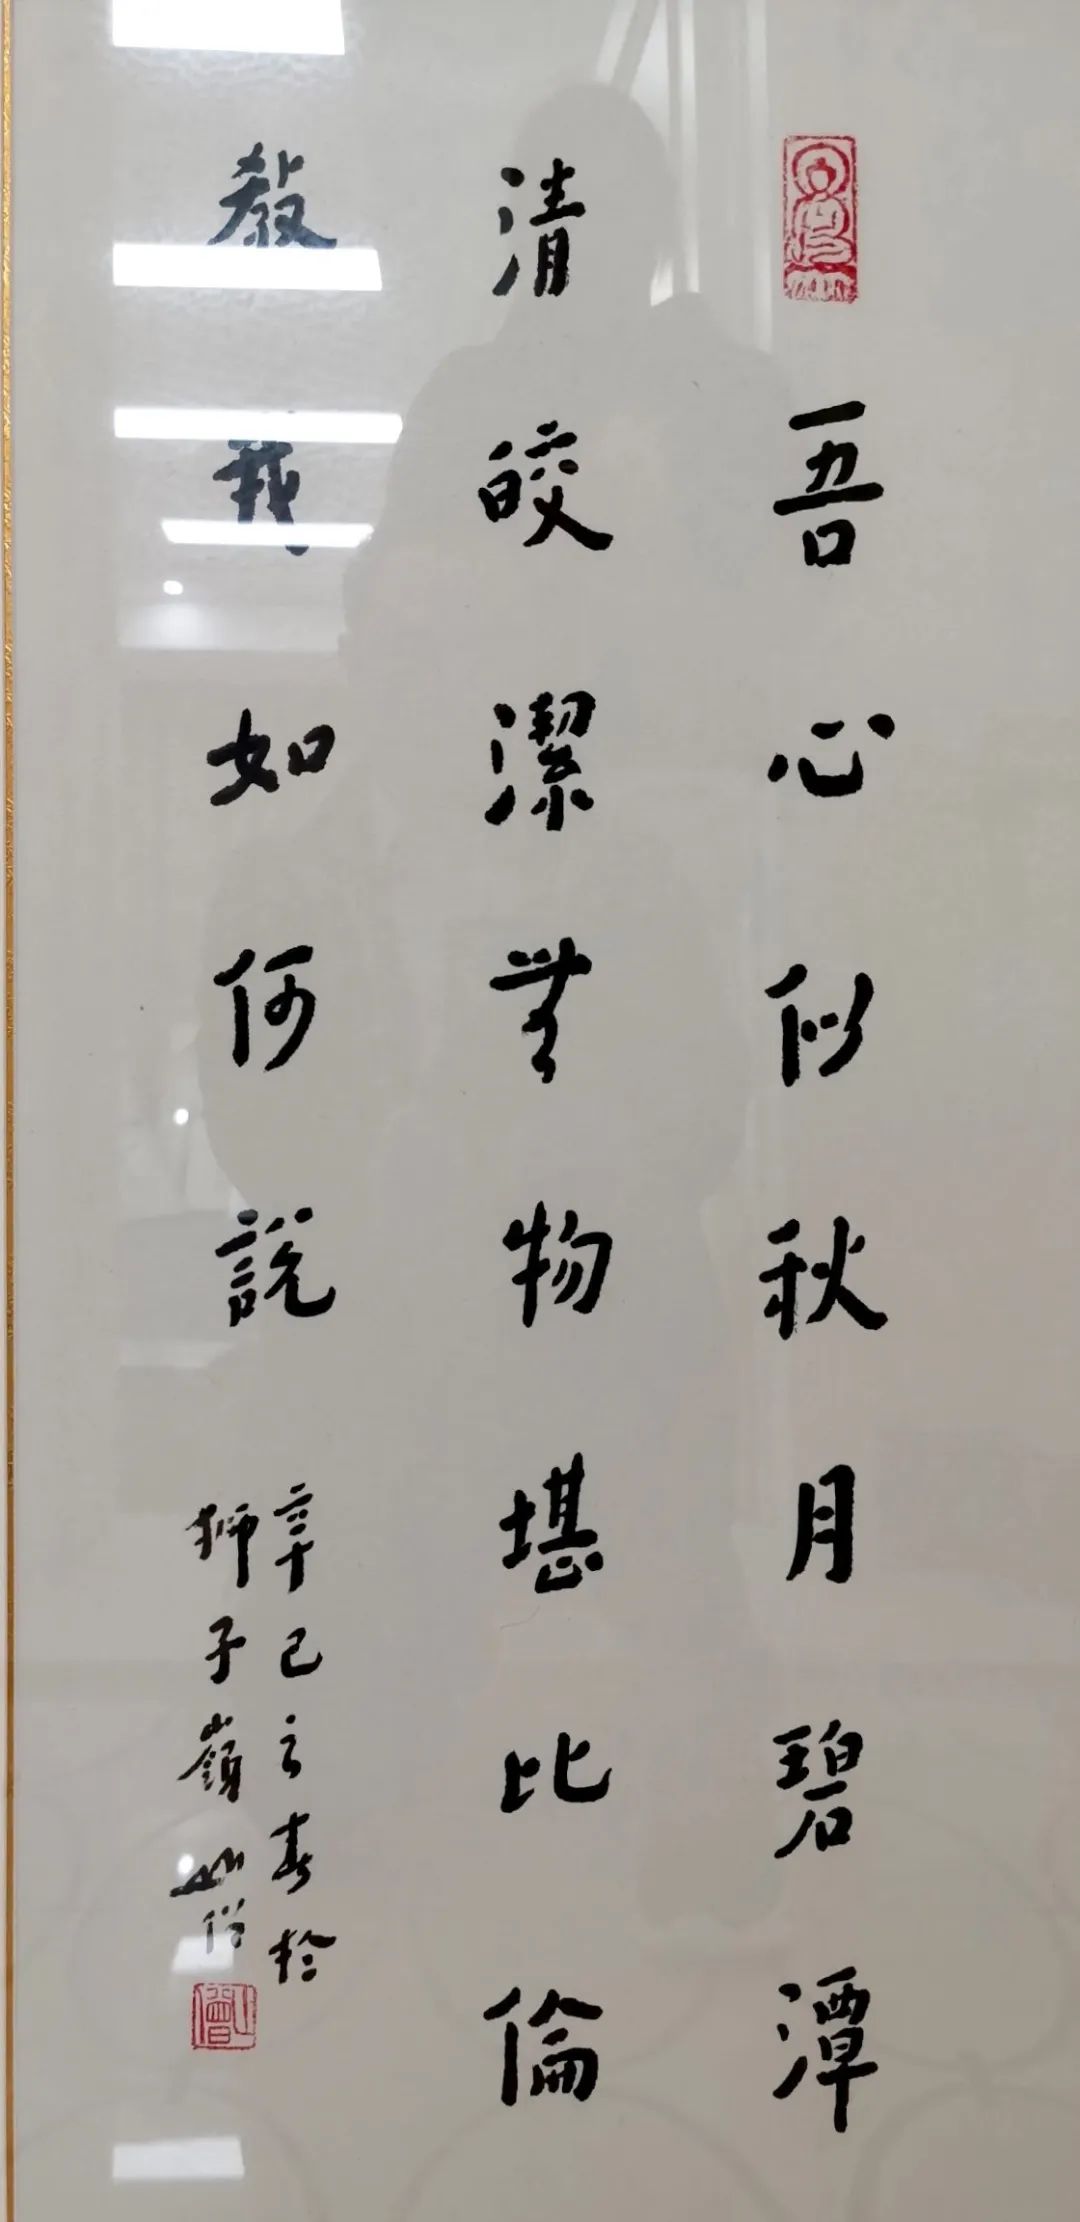 吾心似秋月碧潭
清皎潔無物堪比倫
教我如何說
辛巳之春於
獅子嶺山僧